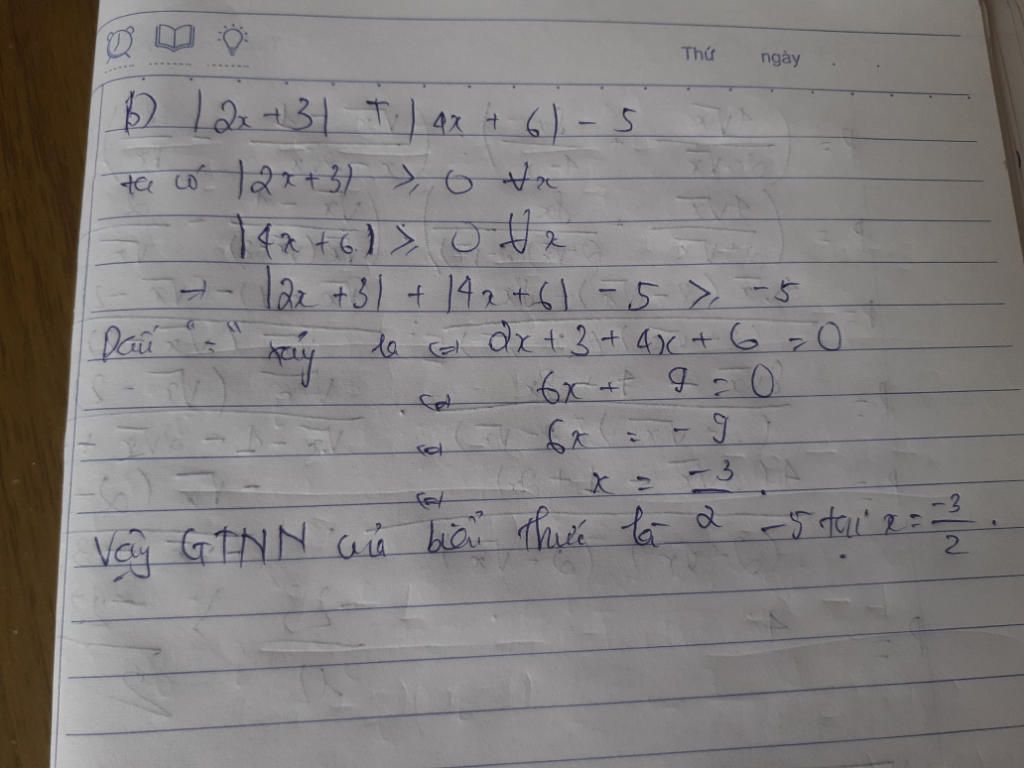 Thứ ngày . .
b) |2x + 3| + |4x + 6| - 5
ta có |2x+3| ≥ 0 ∀x
|4x+6| ≥ 0 ∀x
→ |2x +3| + |4x+6| - 5 ≥ -5
Dấu "=" xảy ra ⇔ 2x + 3 + 4x + 6 = 0
⇔ 6x + 9 = 0
⇔ 6x = - 9
⇔ x = -3/2.
Vậy GTNN của biểu thức là -5 tại x = -3/2.